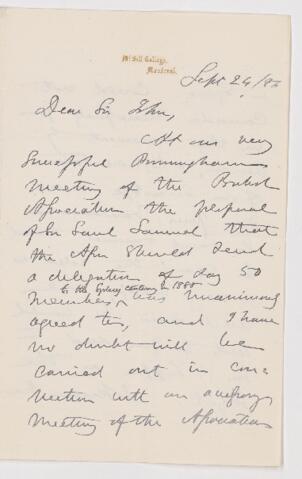 McGill College,
Montreal.
Sept 24/86
Dear Sir John,
At our very
successful Birmingham
Meeting of the British
Association the proposal
of Sir Saul Samuel that
the Assn should send
a delegation of say 50
to the Sydney centenary in 1888
Members, was unanimously
agreed to, and I have
no doubt will be
carried out in con-
nection with an
Meeting of the Association